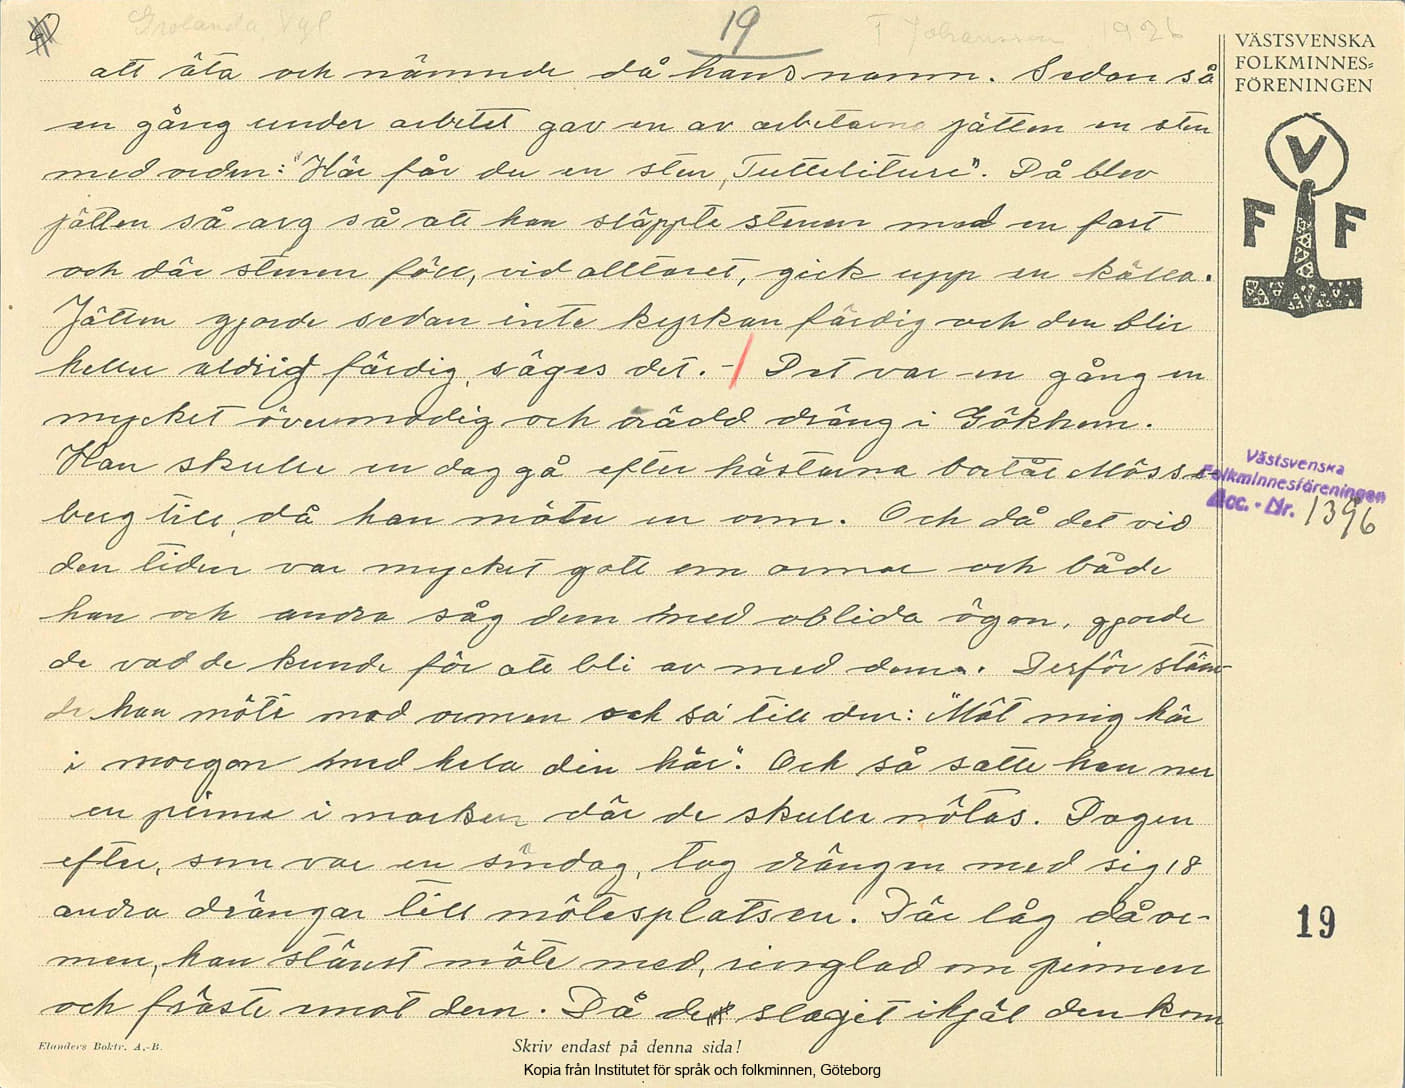 Grolanda, Vgl 19 T Johansson 1926
VÄSTSVENSKA
FOLKMINNES=
FÖRENINGEN
V
F F
att äta och nämnde då hans namn. Sedan så
en gång under arbetet gav en av arbetarna jätten en sten
med orden: "Här får du en sten, Tuttelituri". Då blev
jätten så arg så att han släppte stenen med en fart
och där stenen föll, vid alltaret, gick upp en källa.
Jätten gjorde sedan inte kyrkan färdig och den blir
heller aldrig färdig, säges det. - / Det var en gång en
mycket övermodig och orädd dräng i Gökhem.
Han skulle en dag gå efter hästarna bortåt Mösse-
berg till, då han mötte en orm. Och då det vid
den tiden var mycket gott om ormar och både
han och andra såg dem med oblida ögon, gjorde
de vad de kunde för att bli av med dem. Derför stäm-
de han möte med ormen och sa till den: "Möt mig här
i morgon med hela din här". Och så satte han ner
en pinne i marken där de skulle mötas. Dagen
efter, som var en söndag, tog drängen med sig 18
andra drängar till mötesplatsen. Där låg då or-
men, han stämt möte med, ringlad om pinnen
och fräste emot dem. Då de slagit ihjäl den kom
Västsvenska
Folkminnesföreningen
Acc. - Nr. 1396
19
Elanders Boktr. A.-B.
Skriv endast på denna sida!
Kopia från Institutet för språk och folkminnen, Göteborg